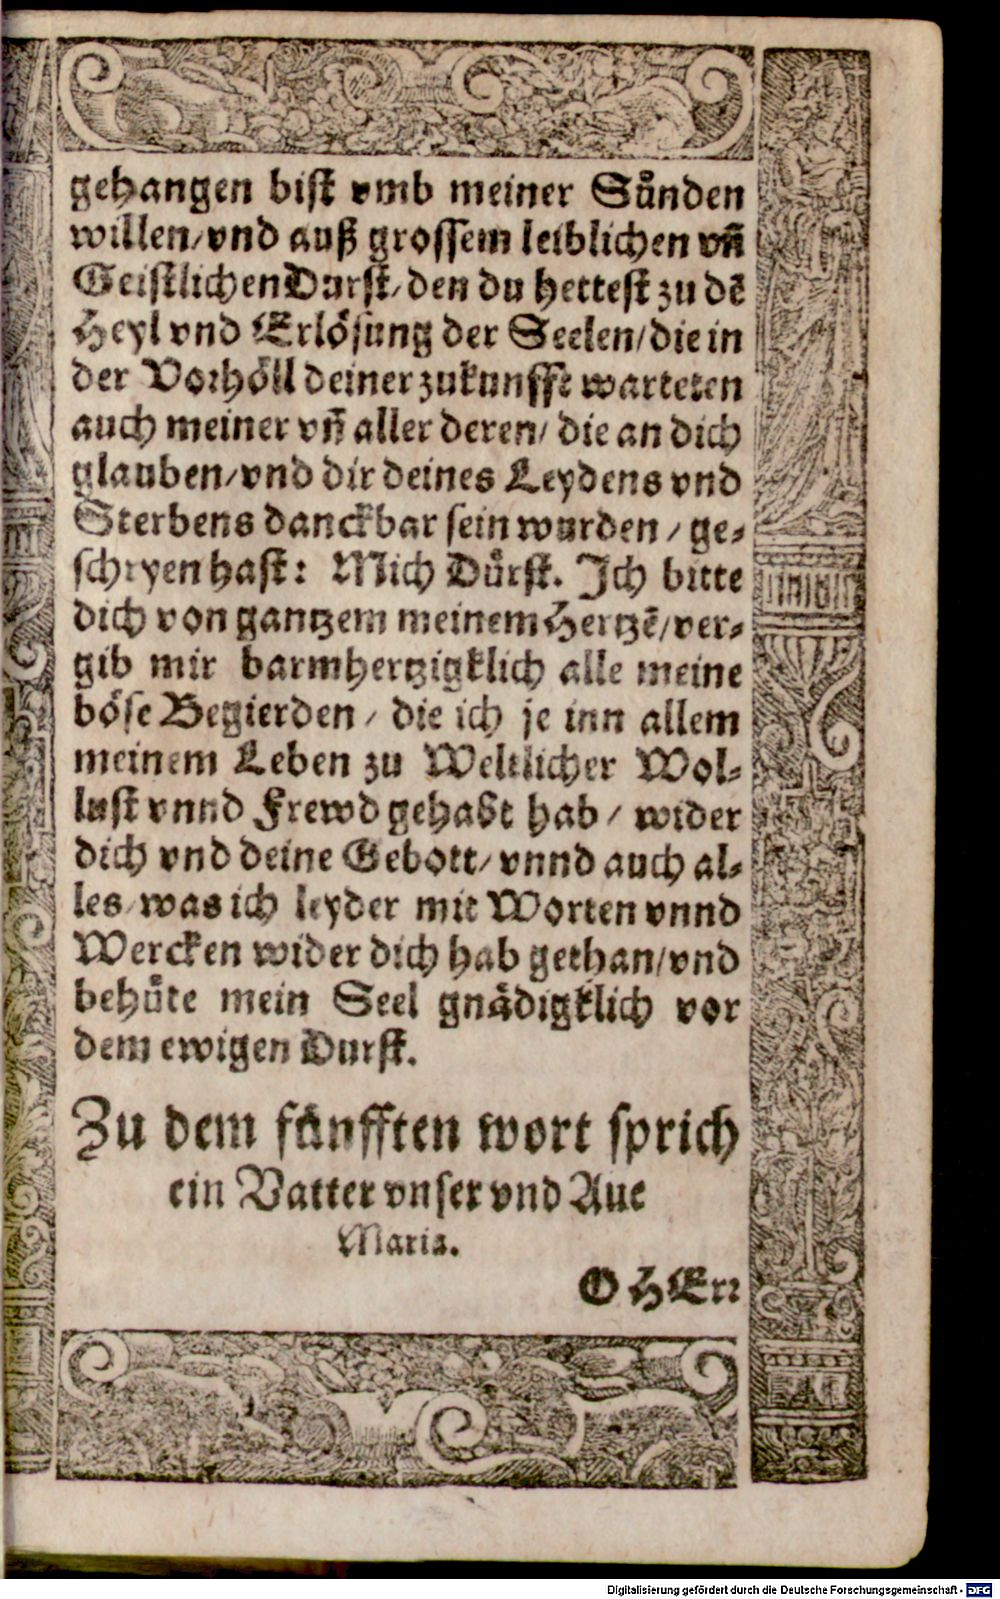 gehangen bist vmb meiner Sünden
willen/vnd auß grossem leiblichen vñ
Geistlichen Durst/den du hettest zu dē
Heyl vnd Erlösung der Seelen/die in
der Vorhöll deiner zukunfft warteten
auch meiner vñ aller deren/ die an dich
glauben/vnd dir deines Leydens vnd
Sterbens danckbar sein wurden / ge-
schryen hast: Mich Dürst. Ich bitte
dich von gantzem meinem Hertzē/ver-
gib mir barmhertzigklich alle meine
böse Begierden / die ich je inn allem
meinem Leben zu Weltlicher Wol-
lust vnnd Frewd gehabt hab / wider
dich vnd deine Gebott/ vnnd auch al-
les/was ich leyder mit Worten vnnd
Wercken wider dich hab gethan/vnd
behüte mein Seel gnädigklich vor
dem ewigen Durst.
Zu dem fünfften wort sprich
ein Vatter vnser vnd Aue
Maria.
O HErr
Digitalisierung gefördert durch die Deutsche Forschungsgemeinschaft - DFG